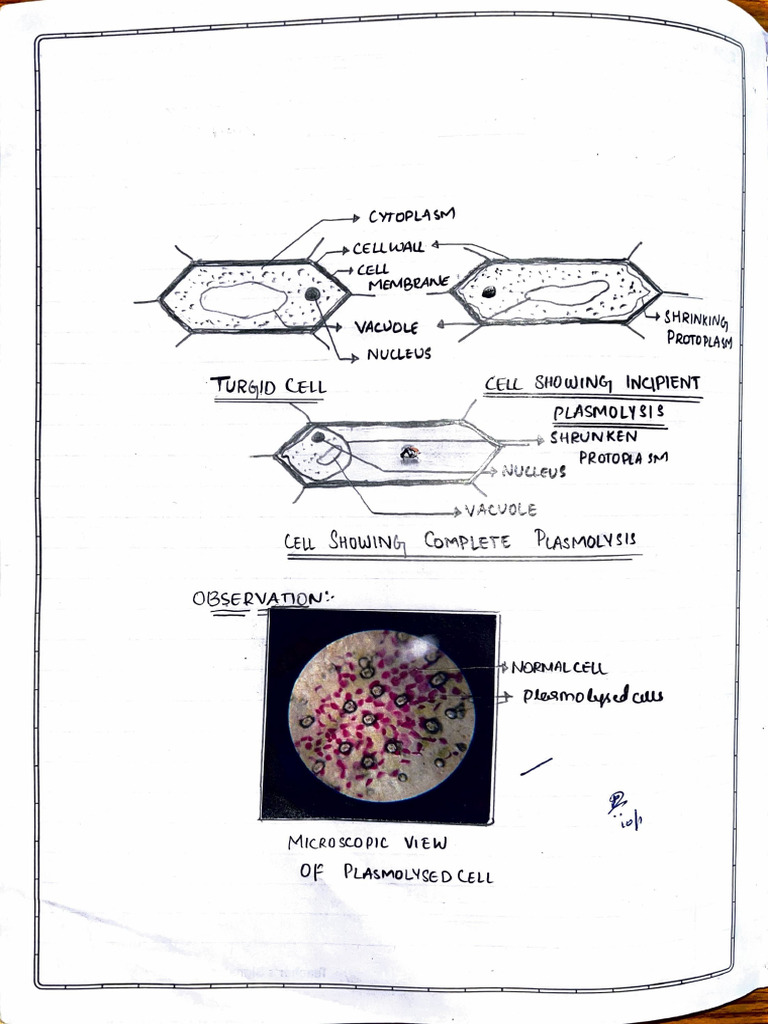 CYTOPLASM
CELLWALL
CELL
MEMBRANE
VACUOLE
NUCLEUS
SHRINKING
PROTOPLASM
TURGID CELL
CELL SHOWING INCIPIENT
PLASMOLYSIS
SHRUNKEN
PROTOPLASM
NUCLEUS
VACUOLE
CELL SHOWING COMPLETE PLASMOLYSIS
OBSERVATION:-
NORMAL CELL
plasmolysed cells
MICROSCOPIC VIEW
OF PLASMOLYSED CELL